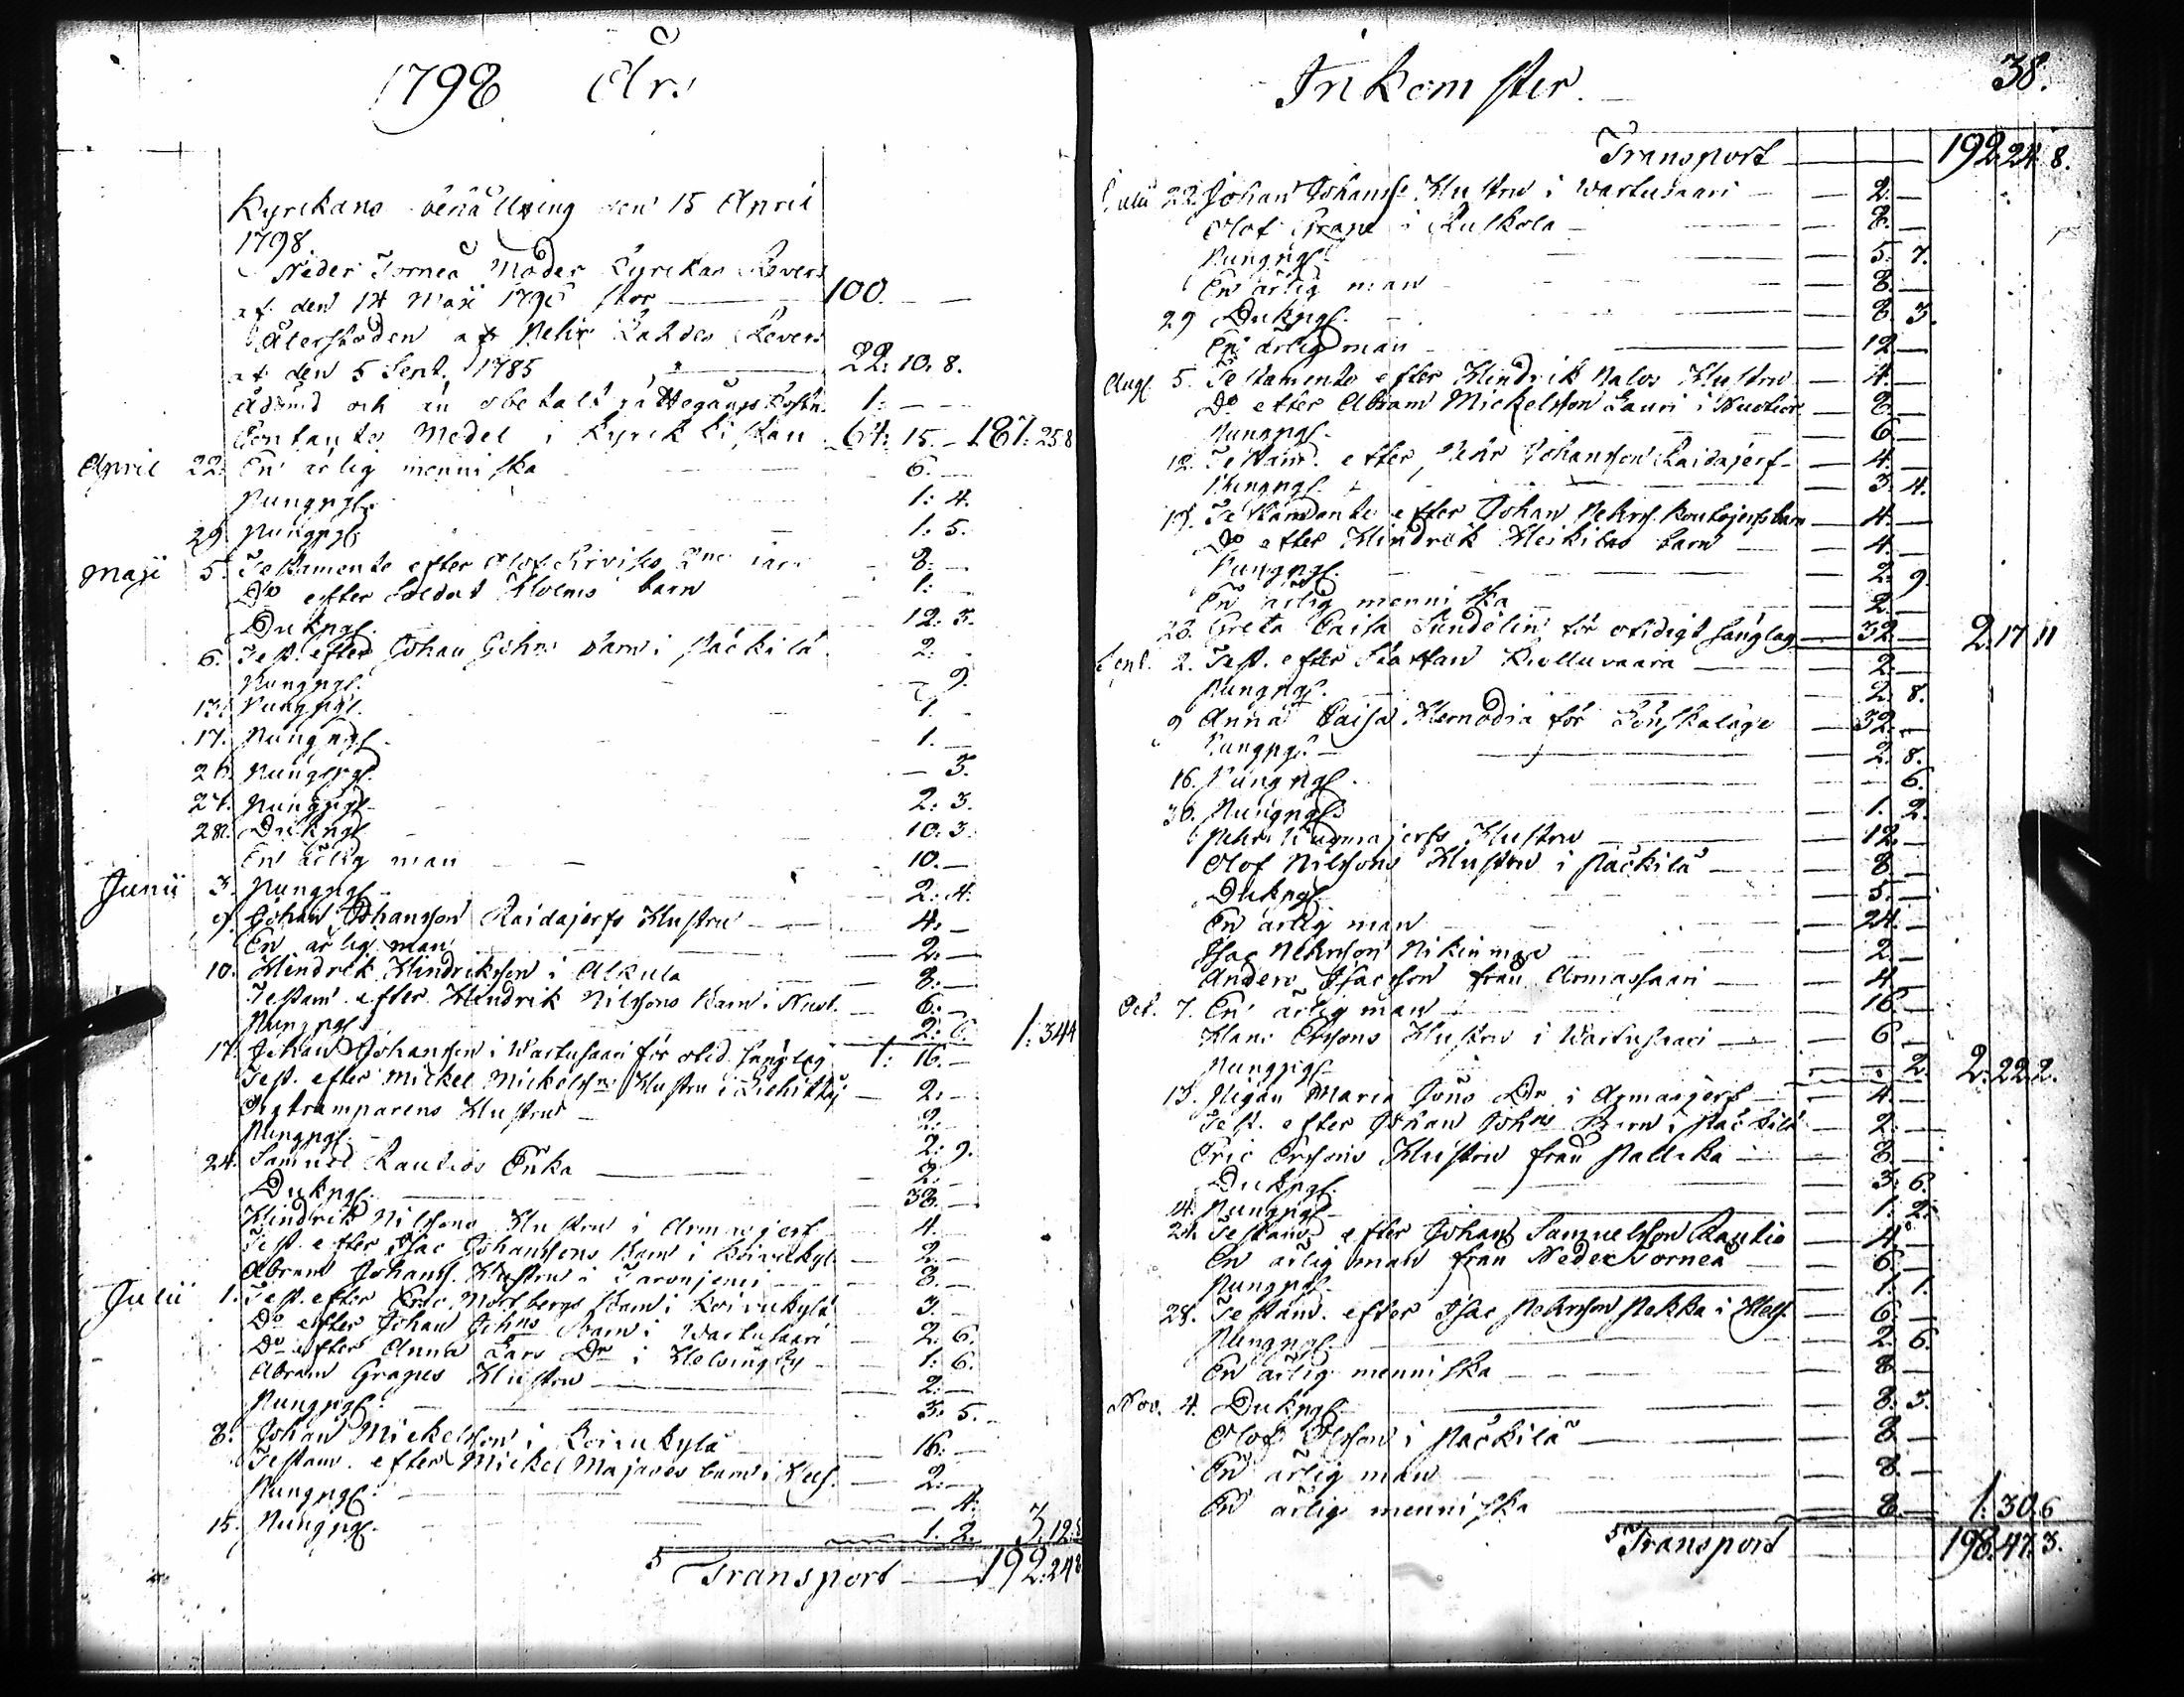 1798 Års
Kyrkans behållning den 15 April
1798.
Neder Torneå Moder Kyrckas Revers
af den 14 Maji 1796 stor 100. — —
Återstoden af Pehr Lahdes Revers
af den 5 Sept. 1785 22: 10. 8.
Ådömd och än obetalt rättegångs Kostn. 1: — —
Contante Medel i Kyrck Kistan 64: 15. — 187: 25 8
April 22. En ärlig menniska 6. —
Pungpgr. 1: 4.
29. Pungpgr. 1: 5.
Maji 5. Testamente efter Olof 8. —
Do efter Soldat Holms barn 1: —
Dukpgr. 12. 3.
6. Test. efter Johan Johns barn i Päckilä 2. —
Pungpgr. — 9.
13. Pungpgr. 1. —
17. Pungpgr. 1. —
26. Pungpgr. — 3.
27. Pungpgr. 2: 3.
28. Dukpgr. 10. 3.
En ärlig man 10. —
Junii 3. Pungpgr. 2: 4.
9. Johan Johansson Raidajerfs Hustru 4. —
En ärlig man 2. —
10. Hindrik Hindriksson i Alkula 8. —
Testam. efter Hindrik Nilssons barn i 6. —
Pungpgr. 2: 6. 1: 34 4
17. Johan Johansson i Wartusaari för olid. sänglag 1: 16. —
Test. efter Mickel Mickelssns Hustru i 2. —
Orgtramparens Hustru 2. —
Pungpgr. 2: 9.
24. Samuel Rautios Enka 2. —
Dukpgr. 38. —
Hindrik Nilssons Hustru i Armasjerf 4. —
Test. efter Isac Johanssons barn i Koivukyl. 2. —
Abram Johanss. Hustru i 8. —
Julii 1. Test. efter Eric Mosbergs barn i Koivukylä 3. —
Do efter Johan Johns barn i Wartusaari 2. 6.
Do efter Anna Lars Dr i Helsingby 1: 6.
Abram Grapes Hustru 2. —
Pungpgr. 3. 5.
8. Johan Mickelsson i Koivukylä 16. —
Testam. efter Mickel Majavas barn i Hels. 2. —
Pungpgr. — 4.
15. Pungpgr. 1. 2. 3. 12. 8
Transport 192: 24 8
Inkomster. 38.
Transport 192. 24. 8.
Julii 22. Johan Johanss. Hustru i Wartusaari 2. —
Olof Grape i Ruskola 8. —
Pungpgr. 5. 7.
En ärlig man 8. —
29 Dukpgr. 8. 3.
En ärlig man 12. —
Aug. 5. Testamente efter Hindrik Palos Hustru 4. —
Do efter Abram Mickelsson Lauri i 8. —
Pungpgr. 6. —
12. Testam. efter Pehr Johansson Raidajerf 4. —
Pungpgr. 3. 4.
19. Testamente efter Johan Pehrs. barn 4. —
Do efter Hindrik Heikilas barn 4. —
Pungpgr. 2. 9
En ärlig menniska 2. —
26. Greta Caisa Sundelin för otidigt sänglag 32 — 2. 17 11
Sept. 2. Test. efter Staffan Kiolluvaara 2. —
Pungpgr. 2. 8.
9 Anna Caisa för Lönskaläge 32. —
Pungpgr. 2. 8.
16. Pungpgr. — 6.
30. Pungpgr. 1. 2.
Pehr Hustru 12. —
Olof Nilssons Hustru i Päckilä 8. —
Dukpgr. 5. —
En ärlig man 24. —
Isac Pehrsson Nikinmaa 2. —
Anders Isacsson från Armassaari 4. —
Oct. 7. En ärlig man 16. —
Hans Erssons Hustru i Wartusaari 6 —
Pungpgr. — 2. 2. 22. 2.
13. Pigan Maria Jöns Dr i Armasjerf 4. —
Test. efter Johan Johns Barn i Päckilä 2. —
Eric Erssons Hustru från 8. —
Dukpgr. 3. 6.
14. Pungpgr. 1. 2.
21. Testam. efter Johan Samuelsson Rautio 4. —
En ärlig man från Neder Torneå 6. —
Pungpgr. 1. 1.
28. Testam. efter Isac Pehrsson Pekka i Hels. 6. —
Pungpgr. 2. 6.
En ärlig menniska 8. —
Nov. 4. Dukpgr. 8. 3.
Olof Olsson i Päckilä 8. —
En ärlig man 8. —
En ärlig menniska 8. — 1. 30. 6
Transport 198. 47. 3.